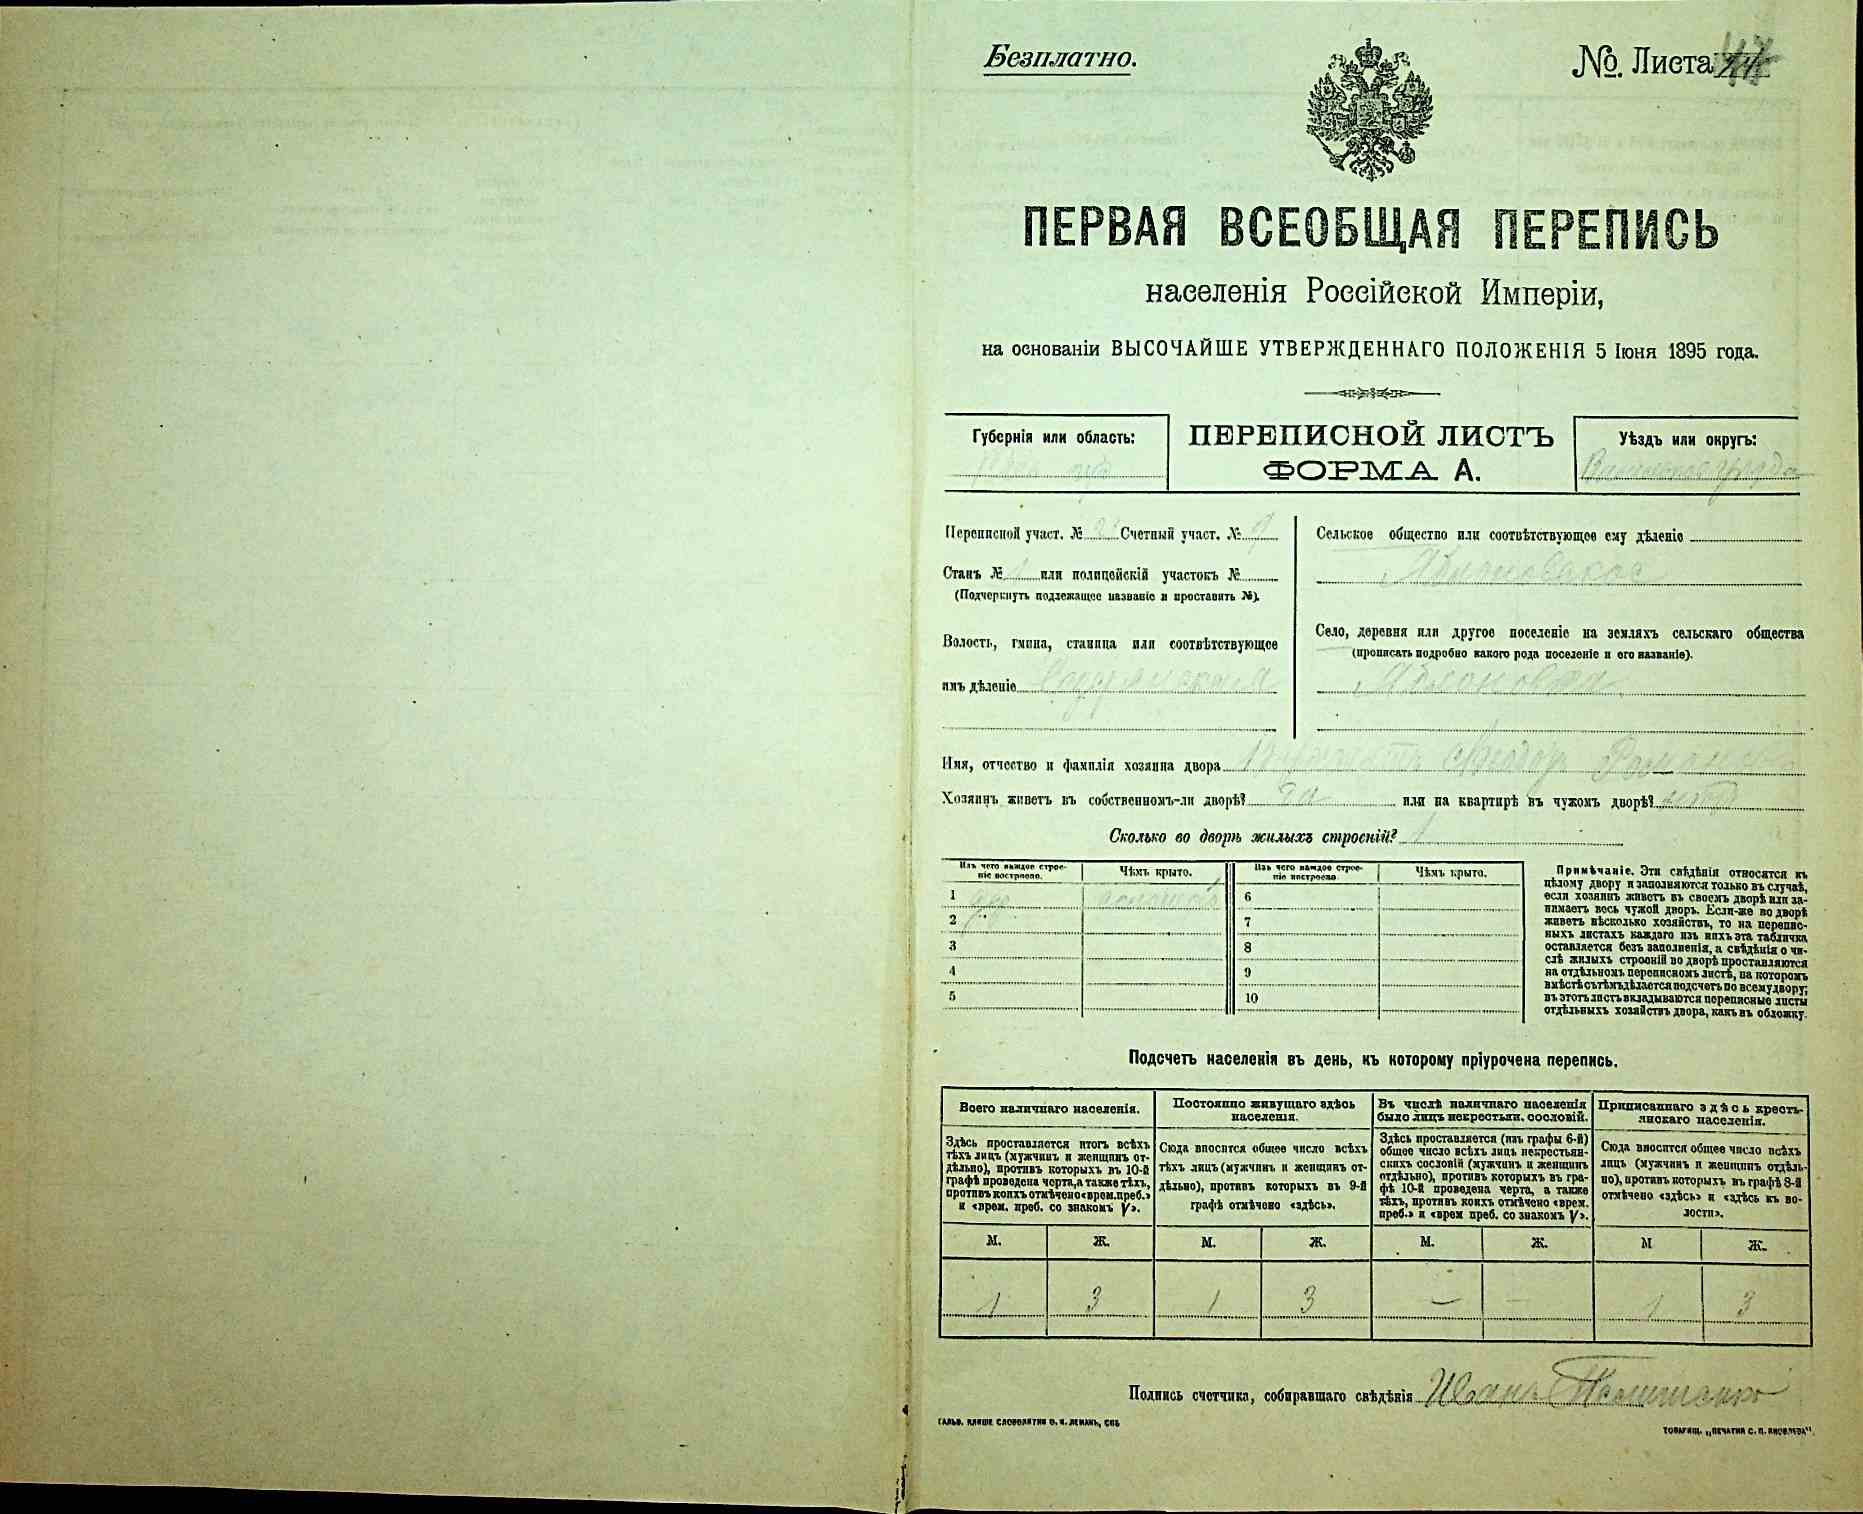 Безплатно.
№. Листа
ПЕРВАЯ ВСЕОБЩАЯ ПЕРЕПИСЬ
населенія Россійской Имперіи,
на основаніи ВЫСОЧАЙШЕ УТВЕРЖДЕННАГО ПОЛОЖЕНІЯ 5 Іюня 1895 года.
Губернія или область:
ПЕРЕПИСНОЙ ЛИСТЪ
ФОРМА А.
Уѣздъ или округъ:
Переписной участ. № Счетный участ. № 9
Станъ № 1 или полицейскій участокъ №
(Подчеркнуть подлежащее названіе и проставить №).
Волость, гмина, станица или соотвѣтствующее
имъ дѣленіе
Сельское общество или соотвѣтствующее ему дѣленіе
Яблоновское
Село, деревня или другое поселеніе на земляхъ сельскаго общества
(прописать подробно какого рода поселеніе и его названіе).
Яблоновка
Имя, отчество и фамилія хозяина двора
Хозяинъ живетъ въ собственномъ-ли дворѣ? да или на квартирѣ въ чужомъ дворѣ?
Сколько во дворѣ жилыхъ строеній? 1
Изъ чего каждое строе-
ніе построено.
Чѣмъ крыто.
1 дер. соломой
2
3
4
5
Изъ чего каждое строе-
ніе построено
Чѣмъ крыто.
6
7
8
9
10
Примѣчаніе. Эти свѣдѣнія относятся къ
цѣлому двору и заполняются только въ случаѣ,
если хозяинъ живетъ въ своемъ дворѣ или за-
нимаетъ весь чужой дворъ. Если-же во дворѣ
живетъ нѣсколько хозяйствъ, то на перепис-
ныхъ листахъ каждаго изъ нихъ эта табличка
оставляется безъ заполненія, а свѣдѣнія о чи-
слѣ жилыхъ строеній во дворѣ проставляются
на отдѣльномъ переписномъ листѣ, на которомъ
вмѣстѣ съ тѣмъ дѣлается подсчетъ по всему двору;
въ этотъ листъ вкладываются переписные листы
отдѣльныхъ хозяйствъ двора, какъ въ обложку.
Подсчетъ населенія въ день, къ которому пріурочена перепись.
Всего наличнаго населенія.
Здѣсь проставляется итогъ всѣхъ
тѣхъ лицъ (мужчинъ и женщинъ от-
дѣльно), противъ которыхъ въ 10-й
графѣ проведена черта, а также тѣхъ,
противъ коихъ отмѣчено «врем. преб.»
и «врем. преб. со знакомъ V».
М. Ж.
1 3
Постоянно живущаго здѣсь
населенія.
Сюда вносится общее число всѣхъ
тѣхъ лицъ (мужчинъ и женщинъ от-
дѣльно), противъ которыхъ въ 9-й
графѣ отмѣчено «здѣсь».
М. Ж.
1 3
Въ числѣ наличнаго населенія
было лицъ некрестьян. сословій.
Здѣсь проставляется (изъ графы 6-й)
общее число всѣхъ лицъ некрестьян-
скихъ сословій (мужчинъ и женщинъ
отдѣльно), противъ которыхъ въ гра-
фѣ 10-й проведена черта, а также
тѣхъ, противъ коихъ отмѣчено «врем.
преб.» и «врем преб. со знакомъ V».
М. Ж.
— —
Приписаннаго здѣсь кресть-
янскаго населенія.
Сюда вносится общее число всѣхъ
лицъ (мужчинъ и женщинъ отдѣль-
но), противъ которыхъ въ графѣ 8-й
отмѣчено «здѣсь» и «здѣсь въ во-
лости».
М Ж.
1 3
Подпись счетчика, собиравшаго свѣдѣнія Иванъ
ГАЛЬВ. КЛИШЕ СЛОВОЛИТНИ О. И. ЛЕМАНЪ, СПБ
ТОВАРИЩ. „ПЕЧАТНЯ С. П. ЯКОВЛЕВА".